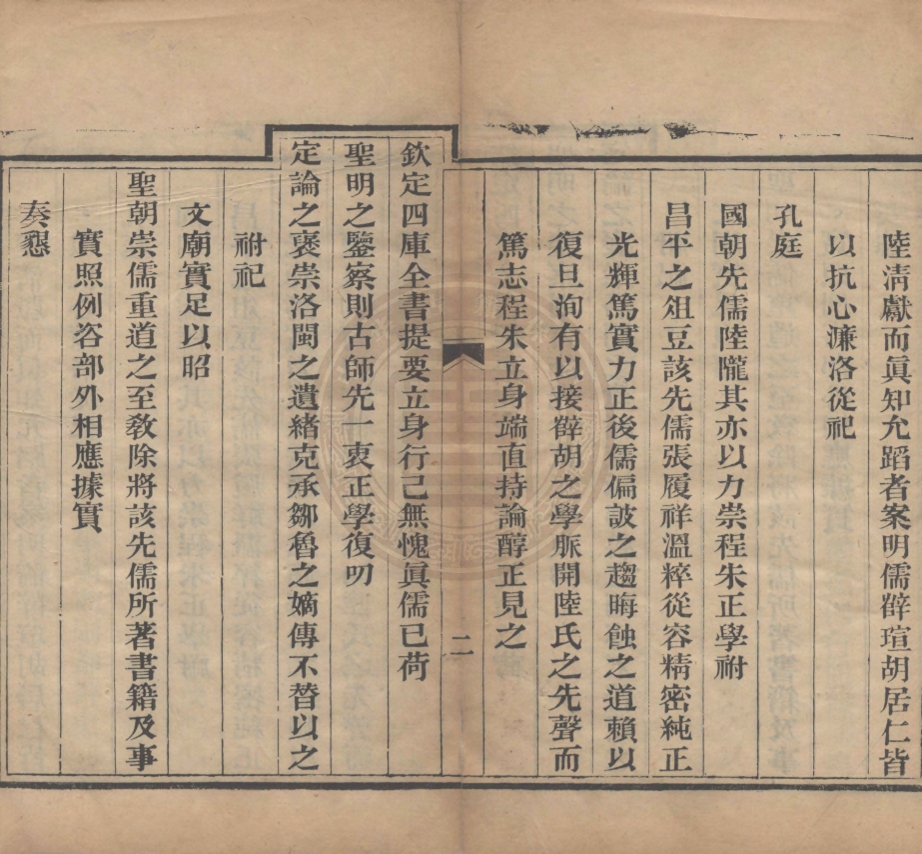 陸淸獻而眞知允蹈者案明儒薛瑄胡居仁皆
以抗心濂洛從祀
孔庭
國朝先儒陸隴其亦以力崇程朱正學祔
昌平之俎豆該先儒張履祥溫粹從容精密純正
光輝篤實力正後儒偏詖之趨晦蝕之道賴以
復旦洵有以接薛胡之學脈開陸氏之先聲而
篤志程朱立身端直持論醇正見之
二
欽定四庫全書提要立身行己無愧眞儒已荷
聖明之鑒察則古師先一衷正學復叨
定論之褒崇洛閩之遺緒克承鄒魯之嫡傳不替以之
祔祀
文廟實足以昭
聖朝崇儒重道之至敎除將該先儒所著書籍及事
實照例咨部外相應據實
奏懇